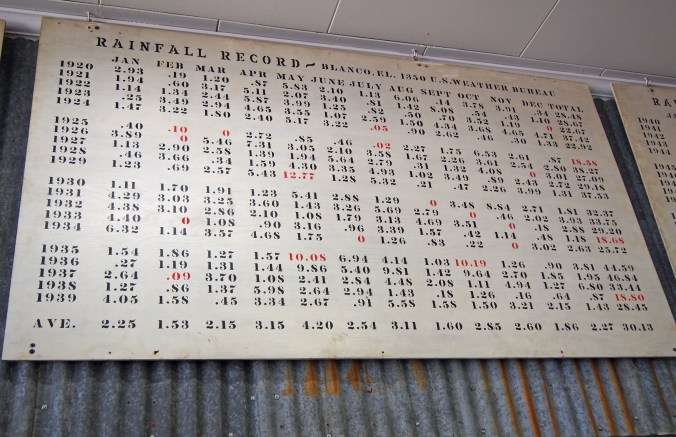 RAINFALL RECORD ~ BLANCO. EL. 1350 U.S. WEATHER BUREAU
JAN FEB MAR APR MAY JUNE JULY AUG SEPT OCT NOV DEC TOTAL
1920 2.93 .19 1.20 .87 5.83 2.10 1.13 6.06 .14 3.78 3.91 .34 28.48
1921 1.94 .60 3.17 5.11 2.07 3.40 .81 1.42 8.08 .54 .43 1.10 28.67
1922 1.14 1.31 2.44 5.87 3.99 1.25 .82 .50 .70 .52 .44 0 22.67
1923 .25 3.49 2.94 1.07 2.59 1.50 4.34 3.68 4.65 4.71 37.42
1924 1.47 3.22 1.80 2.40 5.17 3.22 .05 .90 2.62 .46 .30 1.33 22.92
1925 .40 .10 0 2.72 .85 .46 .02 2.28 1.75 6.53 2.61 .87 18.58
1926 3.89 0 5.46 7.31 3.05 2.10 3.58 1.67 2.26 3.54 2.54 2.80 38.27
1927 1.13 2.90 2.58 1.39 1.94 5.64 2.79 .31 1.32 4.08 0 3.01 27.09
1928 .46 3.66 .34 1.59 4.30 4.35 4.93 1.02 .89 2.49 2.43 2.72 29.18
1929 1.23 .69 2.57 5.43 12.77 1.28 5.32 .21 .47 2.26 3.99 1.31 37.53
1930 1.11 1.70 1.91 1.23 5.41 2.88 1.29 0 3.48 8.84 2.71 1.81 32.37
1931 4.29 3.03 3.25 3.60 1.43 3.26 5.69 2.79 0 .46 2.02 3.93 33.75
1932 2.38 3.10 2.86 2.10 1.08 1.79 3.13 4.69 3.51 0 .18 2.88 29.20
1933 4.40 0 1.08 .90 3.16 .96 3.39 1.57 .42 1.14 .48 1.18 18.68
1934 6.32 1.14 3.57 4.68 1.75 0 1.26 .83 .22 0 3.02 2.63 25.72
1935 1.54 1.86 1.27 1.57 10.08 6.94 4.14 1.03 10.19 1.26 .90 3.81 44.59
1936 .27 1.19 1.31 1.44 9.86 5.40 9.81 1.42 9.64 2.70 1.85 1.95 46.84
1937 2.64 .09 3.70 1.08 2.41 2.84 4.48 2.08 1.11 4.94 1.27 6.80 33.44
1938 1.27 .86 1.37 5.98 2.64 2.94 1.43 .18 1.26 .16 .64 .87 18.80
1939 4.05 1.58 .45 3.34 2.67 .91 5.58 1.58 1.50 3.21 2.15 1.43 28.45
AVE. 2.25 1.53 2.15 3.15 4.20 2.54 3.11 1.60 2.85 2.60 1.86 2.27 30.13
RA
1940
1941
1942
1943
1944
1945
1946
1947
1948
1949